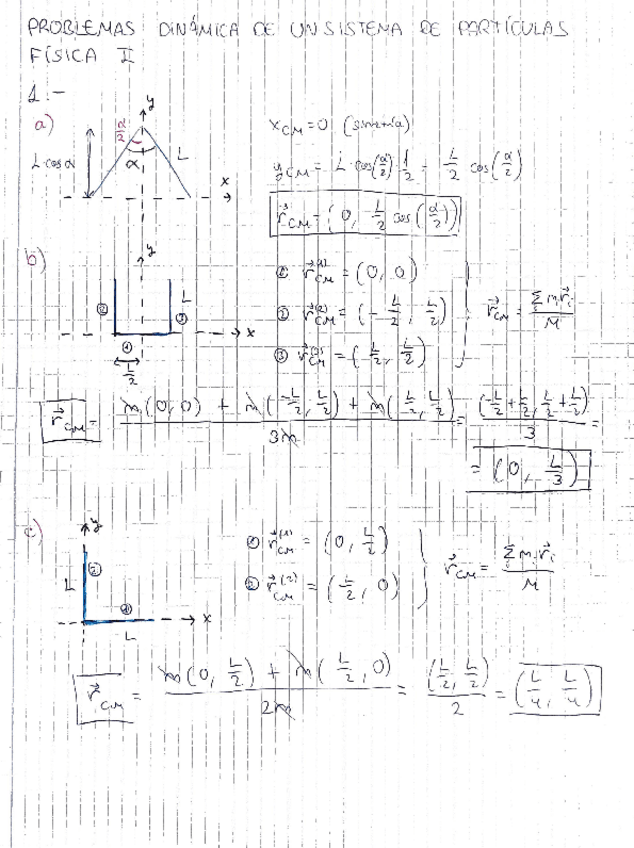 PROBLEMAS DINÁMICA DE UN SISTEMA DE PARTÍCULAS
FÍSICA II
1.-
a)
y
α/2
α
L
L cos α
x
x_CM = 0 (simetría)
y_CM = L cos(α/2) 1/2 = L/2 cos(α/2)
r⃗_CM = (0, L/2 cos(α/2))
b)
y
② ③ L
① x
L/2
① r⃗_CM^(1) = (0, 0)
② r⃗_CM^(2) = (-L/2, L/2)
③ r⃗_CM^(3) = (L/2, L/2)
r⃗_CM = Σ m_i r⃗_i / M
r⃗_CM = m(0, 0) + m(-L/2, L/2) + m(L/2, L/2) / 3m = (-L/2 + L/2, L/2 + L/2) / 3 =
= (0, L/3)
c)
y
L ②
① x
L
① r⃗_CM^(1) = (0, L/2)
② r⃗_CM^(2) = (L/2, 0)
r⃗_CM = Σ m_i r⃗_i / M
r⃗_CM = m(0, L/2) + m(L/2, 0) / 2m = (L/2, L/2) / 2 = (L/4, L/4)